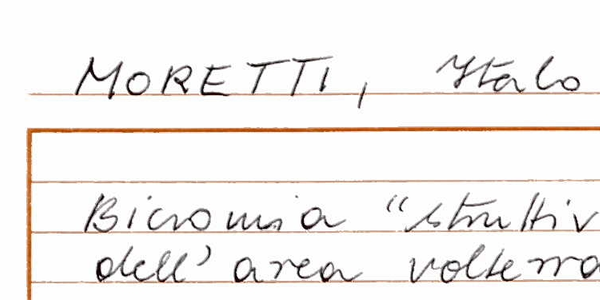 MORETTI, Italo
Bicromia "struttiv
dell'area volterra